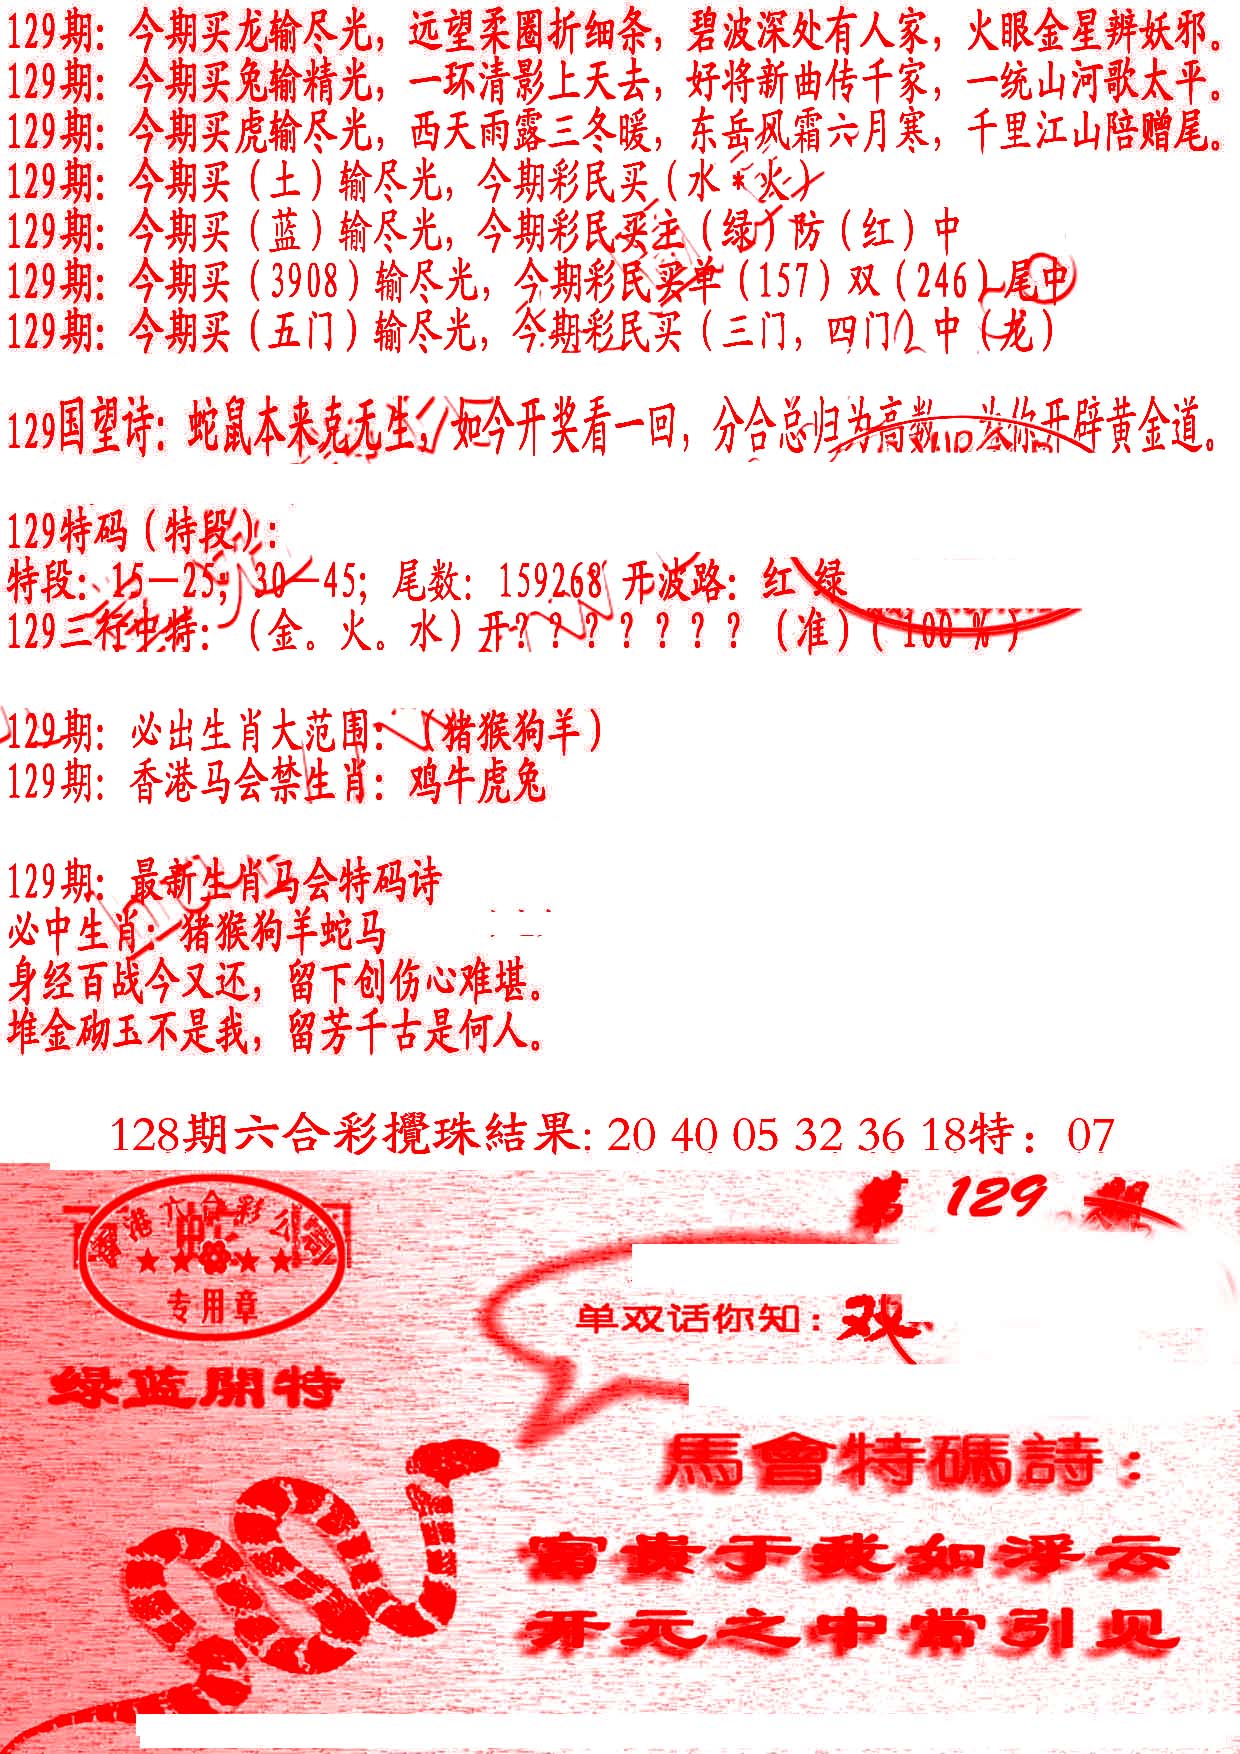 129期：今期买龙输尽光，远望柔圈折细条，碧波深处有人家，火眼金星辨妖邪。
129期：今期买兔输精光，一环清影上天去，好将新曲传千家，一统山河歌太平。
129期：今期买虎输尽光，西天雨露三冬暖，东岳风霜六月寒，千里江山陪赠尾。
129期：今期买（土）输尽光，今期彩民买（水*火）
129期：今期买（蓝）输尽光，今期彩民买主（绿）防（红）中
129期：今期买（3908）输尽光，今期彩民买单（157）双（246）尾中
129期：今期买（五门）输尽光，今期彩民买（三门，四门）中（龙）
129国望诗：蛇鼠本来克无生，如今开奖看一回，分合总归为高数，为你开辟黄金道。
129特码（特段）：
特段：15—25；30—45；尾数：159268 开波路：红 绿
129三行中特：（金。火。水）开？？？？？？？（准）（100%）
129期：必出生肖大范围：（猪猴狗羊）
129期：香港马会禁生肖：鸡牛虎兔
129期：最新生肖马会特码诗
必中生肖：猪猴狗羊蛇马
身经百战今又还，留下创伤心难堪。
堆金砌玉不是我，留芳千古是何人。
128期六合彩攪珠結果: 20 40 05 32 36 18特：07
第 129 期
香港六合彩公司
专用章
单双话你知：双
绿蓝開特
馬會特碼詩：
富贵于我如浮云
开元之中常引见